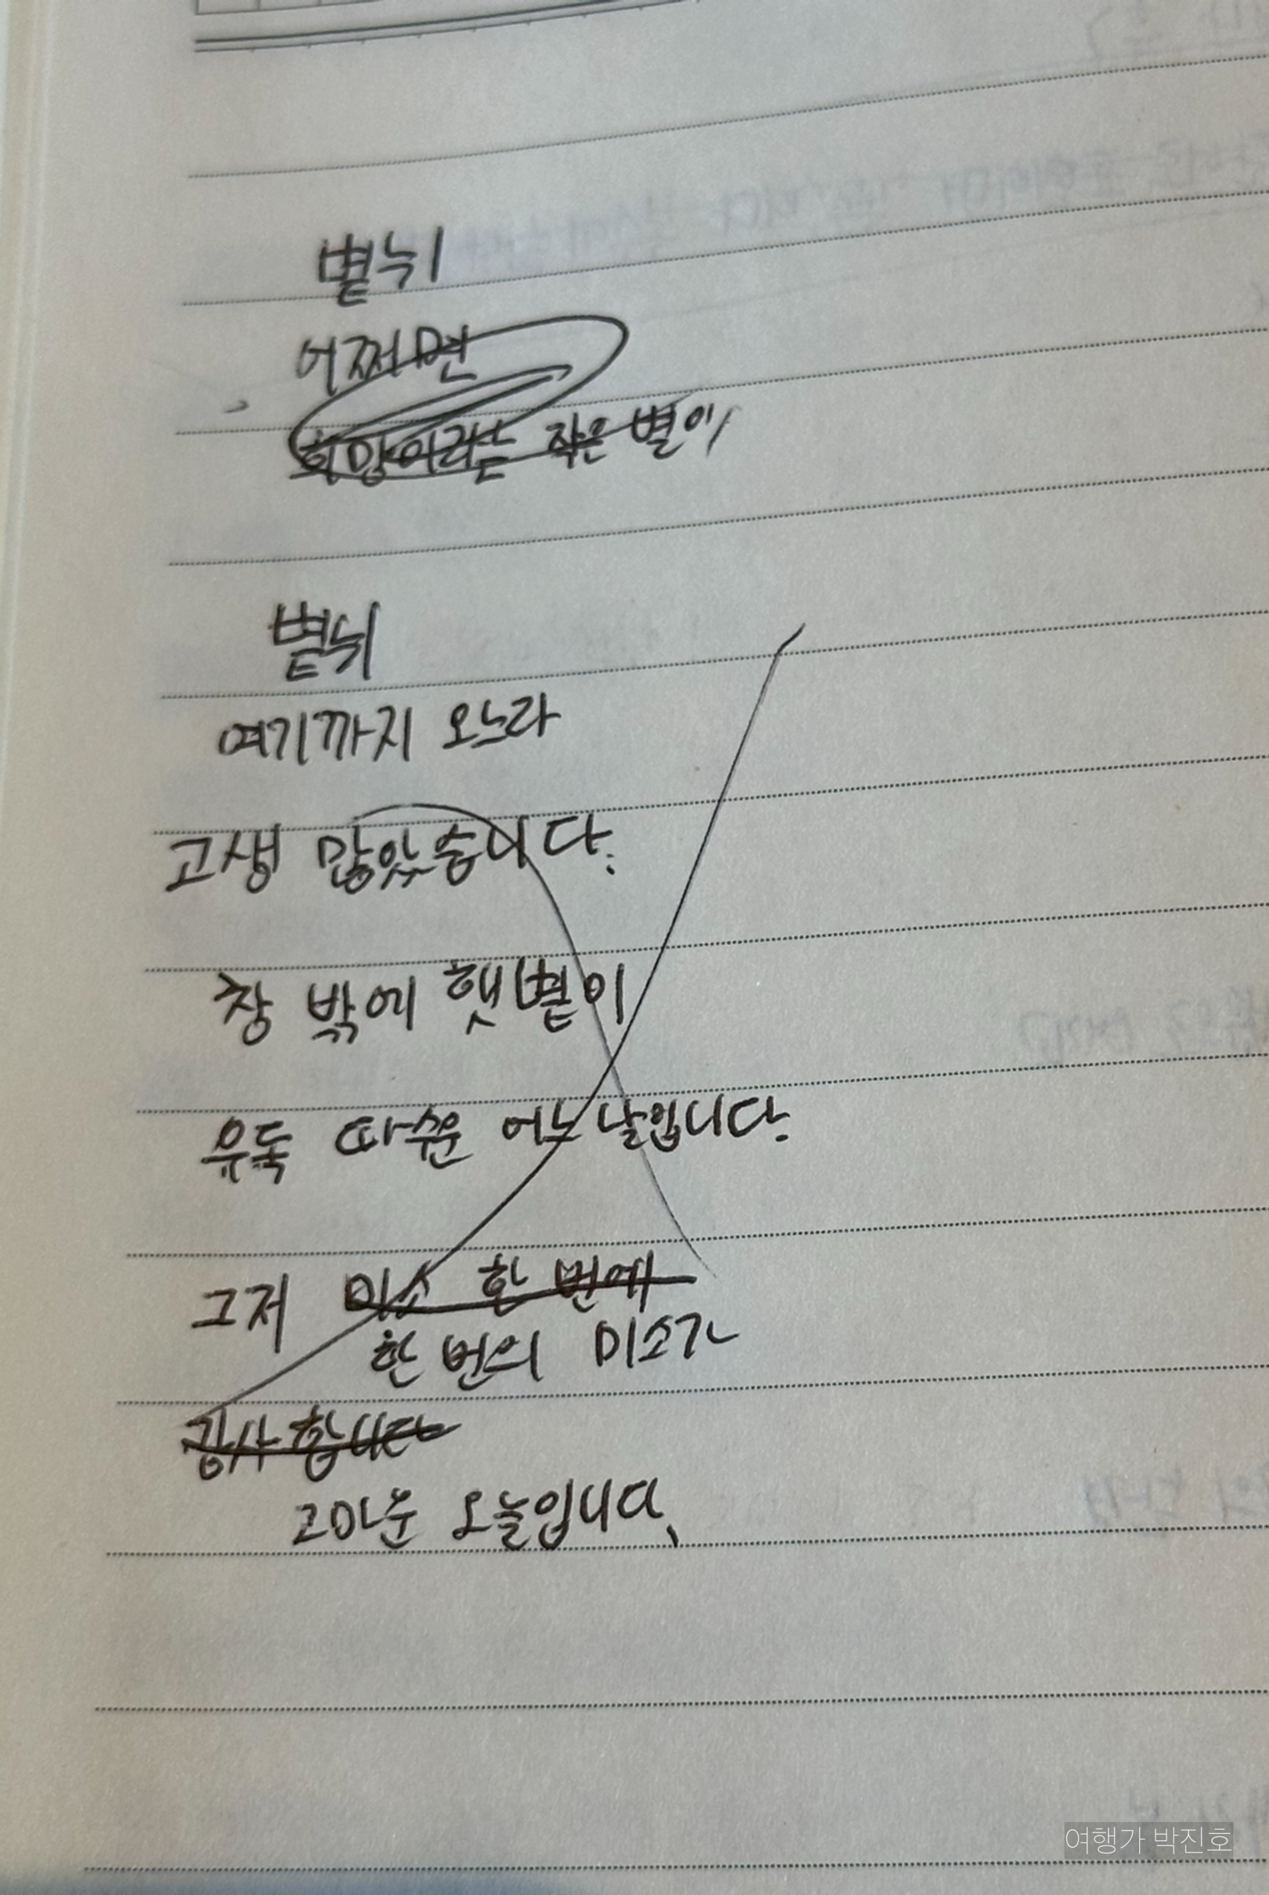 볕뉘
어쩌면
희망이라는 작은 별이
볕뉘
여기까지 오느라
고생 많았습니다.
창 밖에 햇볕이
유독 따쉬운 어느 날입니다.
그저 미소 한 번에
한 번의 미소가
감사합니다
고마운 오늘입니다.
여행가 박진호